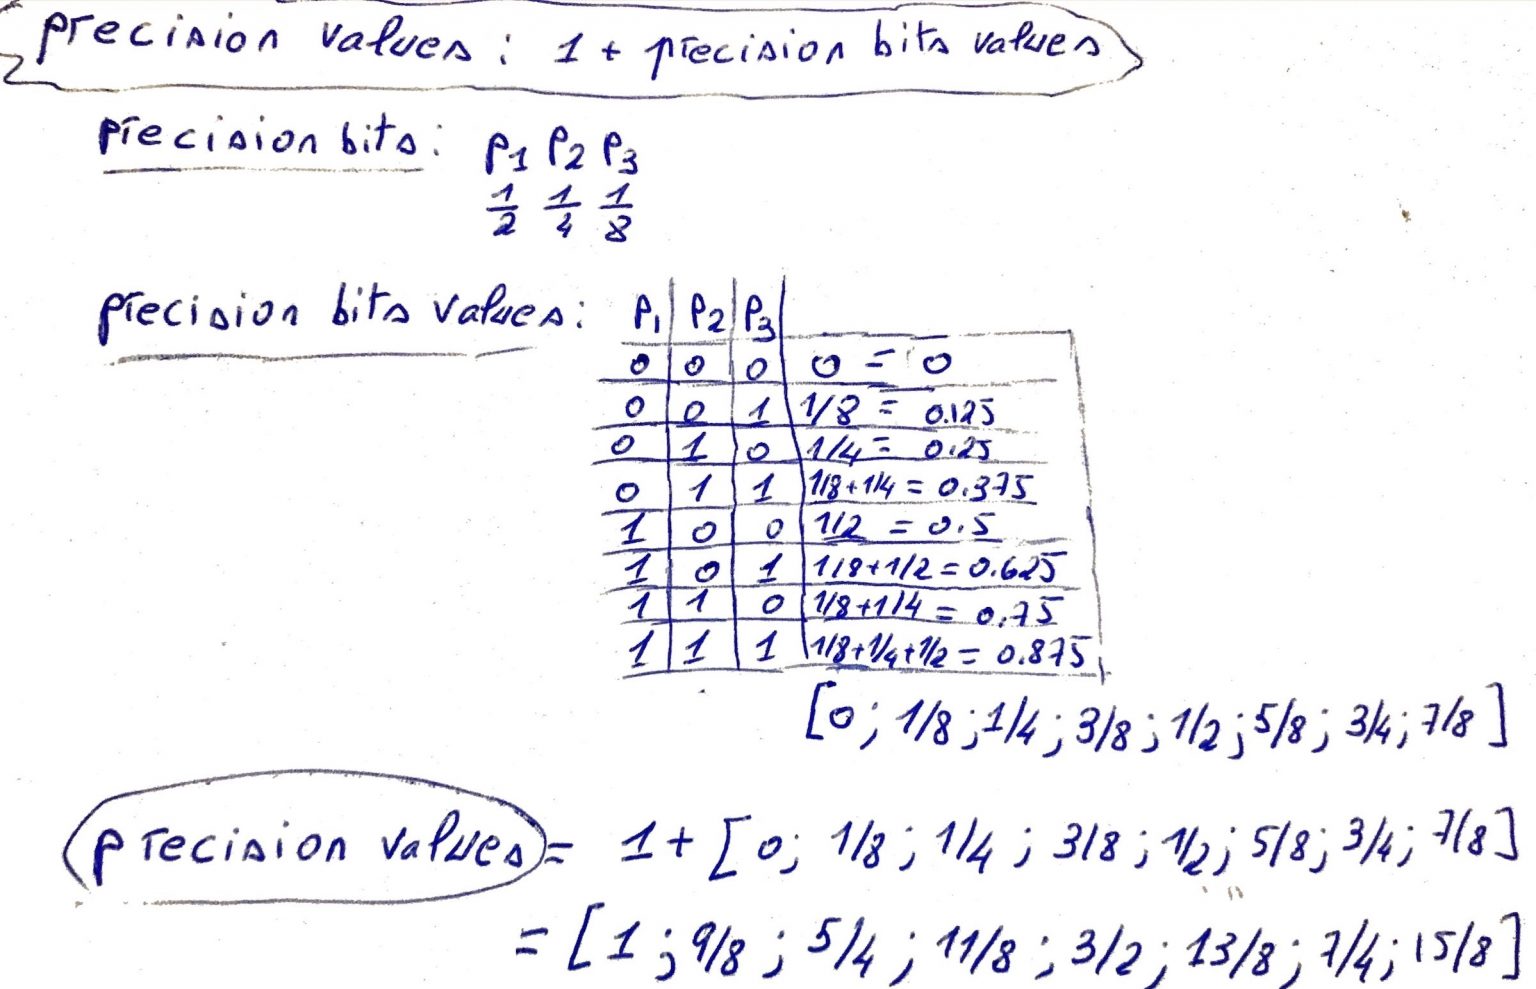 precision values: 1 + precision bits values
precision bits: P1 P2 P3
1/2 1/4 1/8
precision bits values: P1 P2 P3
0 0 0 0 = 0
0 0 1 1/8 = 0.125
0 1 0 1/4 = 0.25
0 1 1 1/8+1/4 = 0.375
1 0 0 1/2 = 0.5
1 0 1 1/8+1/2 = 0.625
1 1 0 1/8+1/4 = 0.75
1 1 1 1/8+1/4+1/2 = 0.875
[0; 1/8; 1/4; 3/8; 1/2; 5/8; 3/4; 7/8]
precision values = 1 + [0; 1/8; 1/4; 3/8; 1/2; 5/8; 3/4; 7/8]
= [1; 9/8; 5/4; 11/8; 3/2; 13/8; 7/4; 15/8]